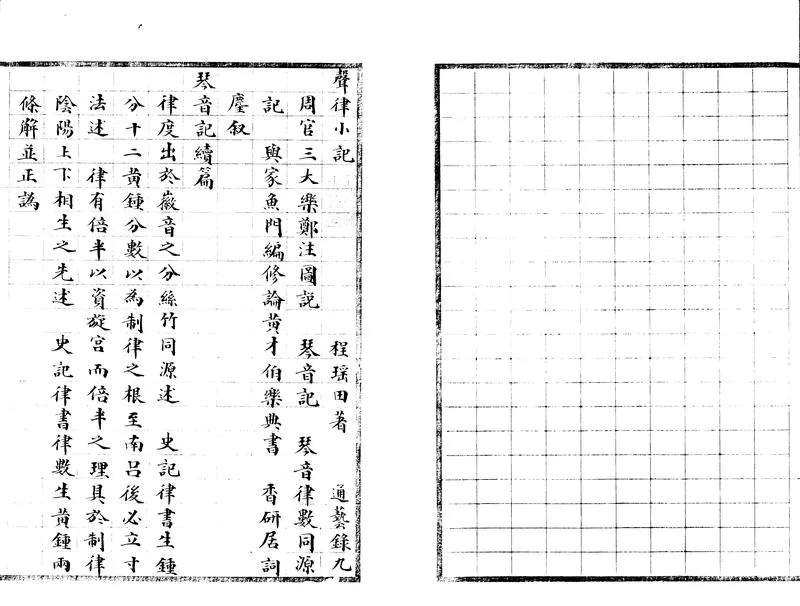 聲律小記 程瑶田著 通藝錄九
周官三大樂鄭注圖説 琴音記 琴音律數同源
記 與家魚門編修論黄才伯樂典書 香研居詞
麈叙
琴音記續篇
律度出於徽音之分絲竹同源述 史記律書生鍾
分十二黄鍾分數以為制律之根至南吕後必立寸
法述 律有倍半以資旋宫而倍半之理具於制律
陰陽上下相生之先述 史記律書律數生黄鍾兩
條解並正譌